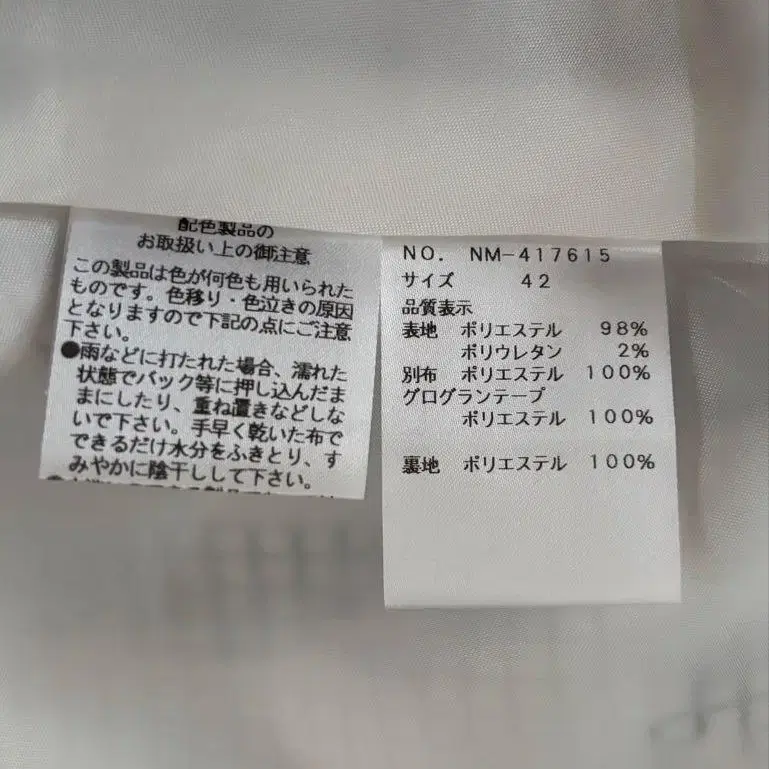 配色製品の
お取扱い上の御注意
この製品は色が何色も用いられた
ものです。色移り・色泣きの原因
となりますので下記の点にご注意
下さい。
●雨などに打たれた場合、濡れた
状態でバック等に押し込んだま
まにしたり、重ね置きなどしな
いで下さい。手早く乾いた布で
できるだけ水分をふきとり、す
みやかに陰干しして下さい。
NO. NM-417615
サイズ 42
品質表示
表地 ポリエステル 98%
ポリウレタン 2%
別布 ポリエステル 100%
グログランテープ
ポリエステル 100%
裏地 ポリエステル 100%